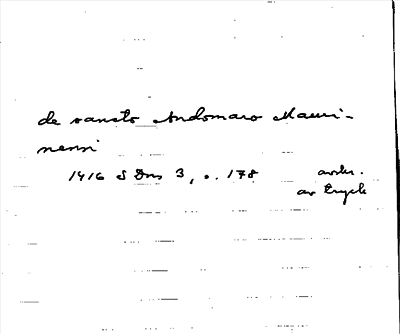 de sancto Andomaro Mauri-
nensi
1416 S Dns 3, s. 178 avskr.
av tryck